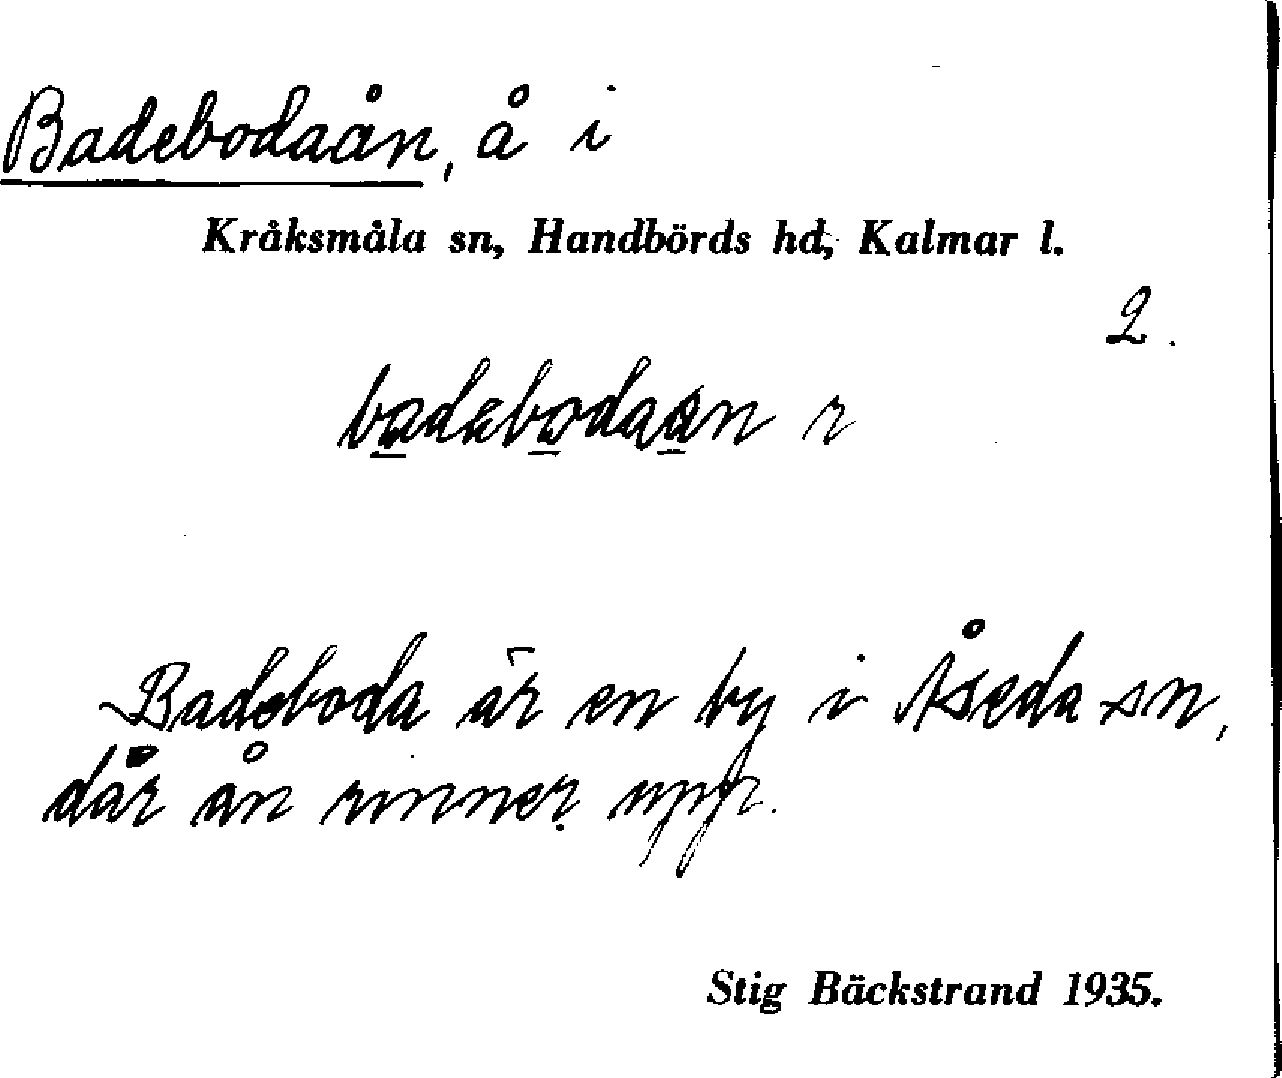 Badebodaån, å i
Kråksmåla sn, Handbörds hd, Kalmar l.
2.
badebodaån r
Badeboda är en by i Åseda sn,
där ån rinner upp.
Stig Bäckstrand 1935.